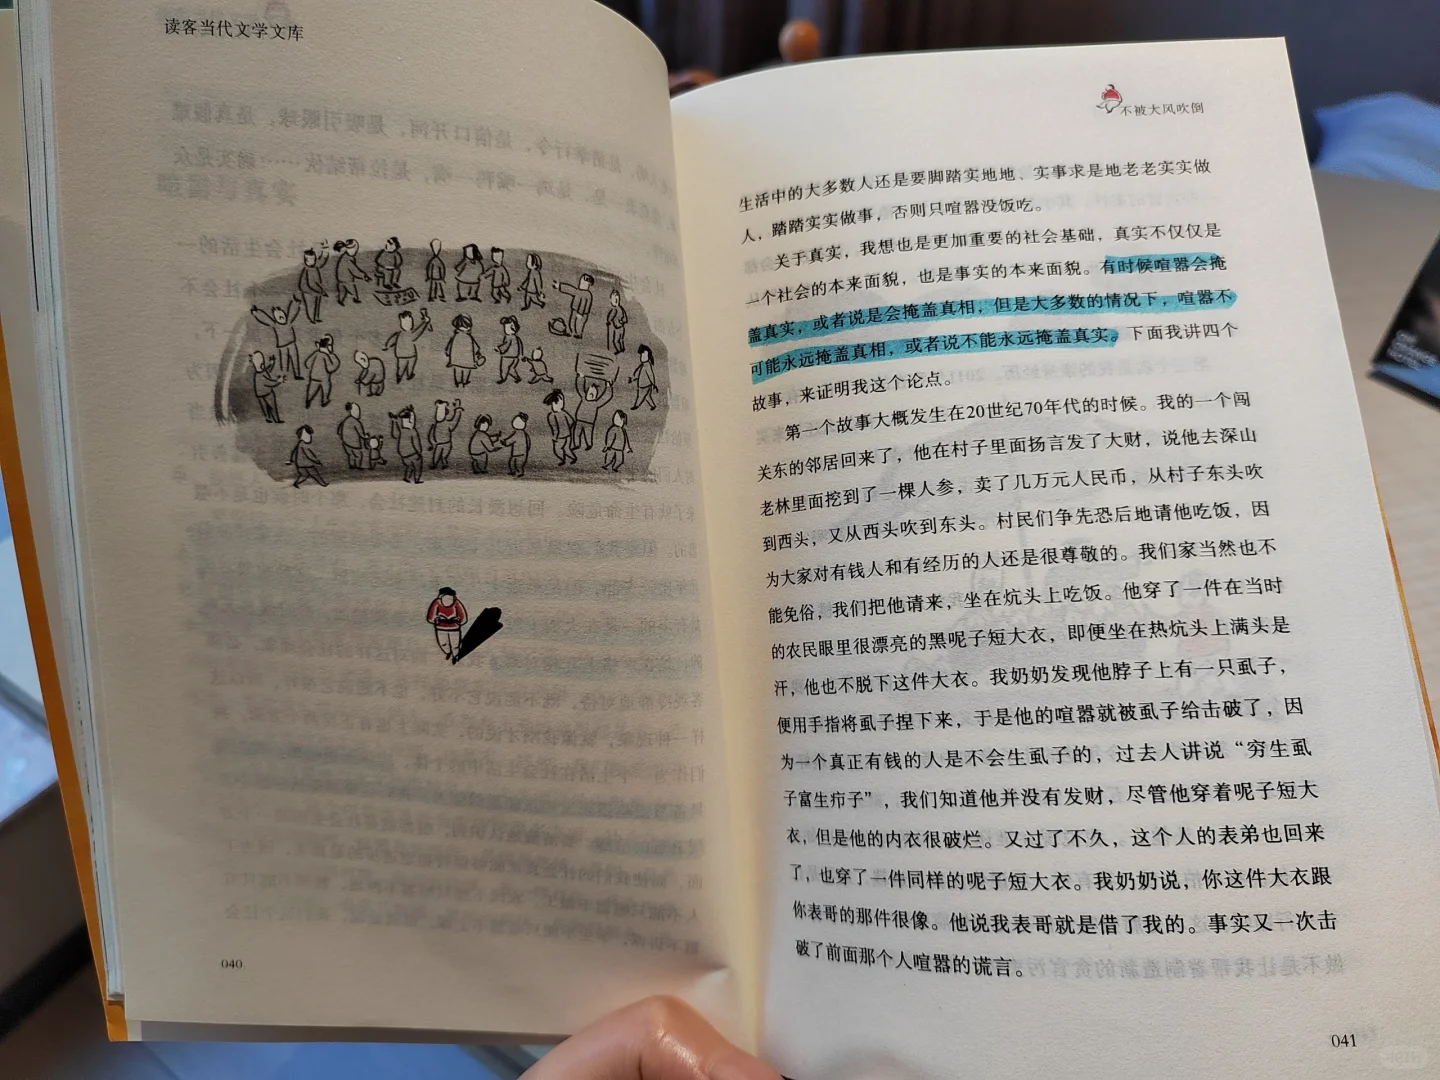 读客当代文学文库
040
不被大风吹倒
生活中的大多数人还是要脚踏实地地、实事求是地老老实实做
人，踏踏实实做事，否则只喧嚣没饭吃。
关于真实，我想也是更加重要的社会基础，真实不仅仅是
一个社会的本来面貌，也是事实的本来面貌。有时候喧嚣会掩
盖真实，或者说是会掩盖真相，但是大多数的情况下，喧嚣不
可能永远掩盖真相，或者说不能永远掩盖真实。下面我讲四个
故事，来证明我这个论点。
第一个故事大概发生在20世纪70年代的时候。我的一个闯
关东的邻居回来了，他在村子里面扬言发了大财，说他去深山
老林里面挖到了一棵人参，卖了几万元人民币，从村子东头吹
到西头，又从西头吹到东头。村民们争先恐后地请他吃饭，因
为大家对有钱人和有经历的人还是很尊敬的。我们家当然也不
能免俗，我们把他请来，坐在炕头上吃饭。他穿了一件在当时
的农民眼里很漂亮的黑呢子短大衣，即便坐在热炕头上满头是
汗，他也不脱下这件大衣。我奶奶发现他脖子上有一只虱子，
便用手指将虱子捏下来，于是他的喧嚣就被虱子给击破了，因
为一个真正有钱的人是不会生虱子的，过去人讲说“穷生虱
子富生疖子”，我们知道他并没有发财，尽管他穿着呢子短大
衣，但是他的内衣很破烂。又过了不久，这个人的表弟也回来
了，也穿了一件同样的呢子短大衣。我奶奶说，你这件大衣跟
你表哥的那件很像。他说我表哥就是借了我的。事实又一次击
破了前面那个人喧嚣的谎言。
041